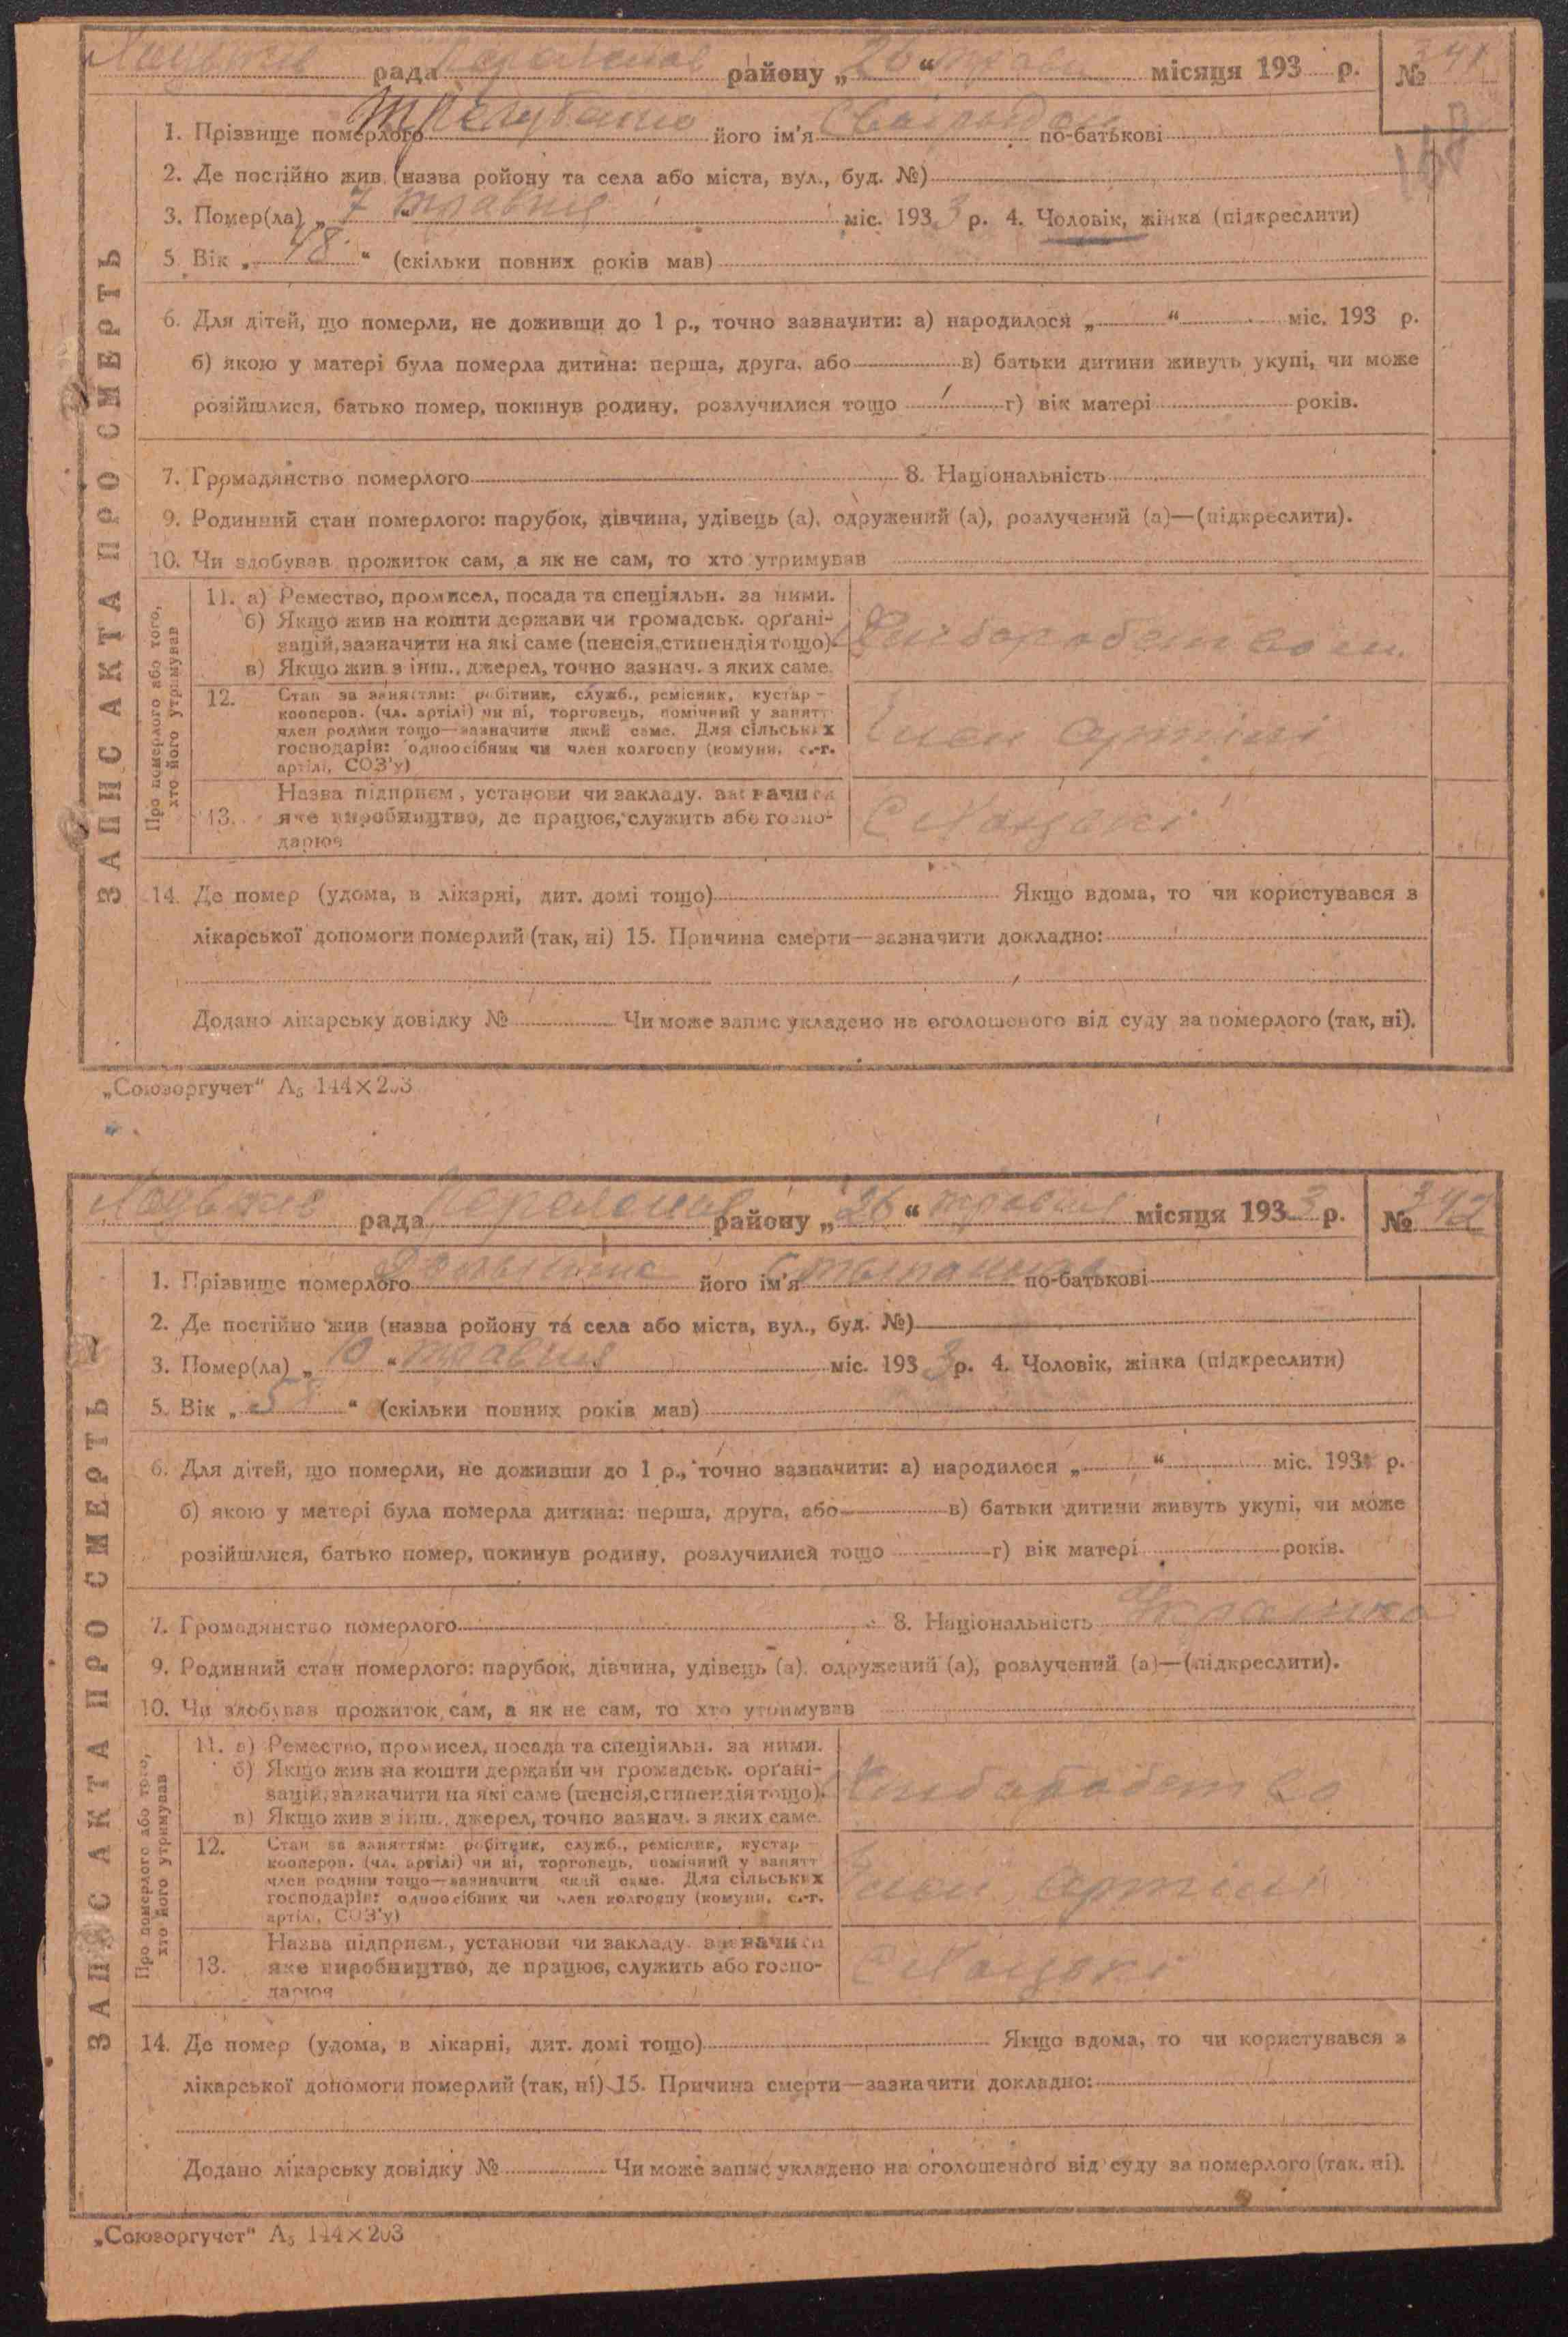 рада район у „26“ травн місяця 193 р. № 341
1. Прізвище померлого його ім'я по-батькові
2. Де постійно жив (назва ройону та села або міста, вул., буд. №)
3. Помер(ла) „7“ травня міс. 1933 р. 4. Чоловік, жінка (підкреслити)
5. Вік „48“ (скільки повних років мав)
6. Для дітей, що померли, не доживши до 1 р., точно зазначити: а) народилося „ “ міс. 193 р.
б) якою у матері була померла дитина: перша, друга, або в) батьки дитини живуть укупі, чи може
розійшлися, батько помер, покинув родину, розлучилися тощо г) вік матері років.
7. Громадянство померлого 8. Національність
9. Родинний стан померлого: парубок, дівчина, удівець (а), одружений (а), розлучений (а)—(підкреслити).
10. Чи здобував прожиток сам, а як не сам, то хто утримував
ЗАПИС АКТА ПРО СМЕРТЬ
Про померлого або того,
хто його утримував
11. а) Ремество, промисел, посада та спеціяльн. за ними.
б) Якщо жив на кошти держави чи громадськ. орґані-
зацій, зазначити на які саме (пенсія, стипендія тощо).
в) Якщо жив з інш., джерел, точно зазнач. з яких саме.
12. Стан за заняттям: робітник, служб., ремісник, кустар –
кооперов. (чл. артілі) чи ні, торговець, помічний у занятт
член родини тощо—зазначити який саме. Для сільських
господарів: одноосібник чи член колгоспу (комуни, с.-г.
артілі, СОЗ'у)
Член артілі
Назва підприєм., установи чи закладу. зазначити
13. яке виробництво, де працює, служить або госпо-
дарює
14. Де помер (удома, в лікарні, дит. домі тощо) Якщо вдома, то чи користувався з
лікарської допомоги померлий (так, ні) 15. Причина смерти—зазначити докладно:
Додано лікарську довідку № Чи може запис укладено на оголошеного від суду за померлого (так, ні).
„Союзоргучет“ А₅ 144×203
рада району „26“ травня місяця 1933 р. № 342
1. Прізвище померлого його ім'я по-батькові
2. Де постійно жив (назва ройону та села або міста, вул., буд. №)
3. Помер(ла) „10“ травня міс. 1933 р. 4. Чоловік, жінка (підкреслити)
5. Вік „58“ (скільки повних років мав)
6. Для дітей, що померли, не доживши до 1 р., точно зазначити: а) народилося „ “ міс. 193 р.
б) якою у матері була померла дитина: перша, друга, або в) батьки дитини живуть укупі, чи може
розійшлися, батько помер, покинув родину, розлучилися тощо г) вік матері років.
7. Громадянство померлого 8. Національність
9. Родинний стан померлого: парубок, дівчина, удівець (а), одружений (а), розлучений (а)—(підкреслити).
10. Чи здобував прожиток сам, а як не сам, то хто утримував
ЗАПИС АКТА ПРО СМЕРТЬ
Про померлого або того,
хто його утримував
11. а) Ремество, промисел, посада та спеціяльн. за ними.
б) Якщо жив на кошти держави чи громадськ. орґані-
зацій, зазначити на які саме (пенсія, стипендія тощо).
в) Якщо жив з інш., джерел, точно зазнач. з яких саме.
12. Стан за заняттям: робітник, служб., ремісник, кустар –
кооперов. (чл. артілі) чи ні, торговець, помічний у занятт
член родини тощо—зазначити який саме. Для сільських
господарів: одноосібник чи член колгоспу (комуни, с.-г.
артілі, СОЗ'у)
Член артілі
Назва підприєм., установи чи закладу. зазначити
13. яке виробництво, де працює, служить або госпо-
дарює
14. Де помер (удома, в лікарні, дит. домі тощо) Якщо вдома, то чи користувався з
лікарської допомоги померлий (так, ні) 15. Причина смерти—зазначити докладно:
Додано лікарську довідку № Чи може запис укладено на оголошеного від суду за померлого (так, ні).
„Союзоргучет“ А₅ 144×203